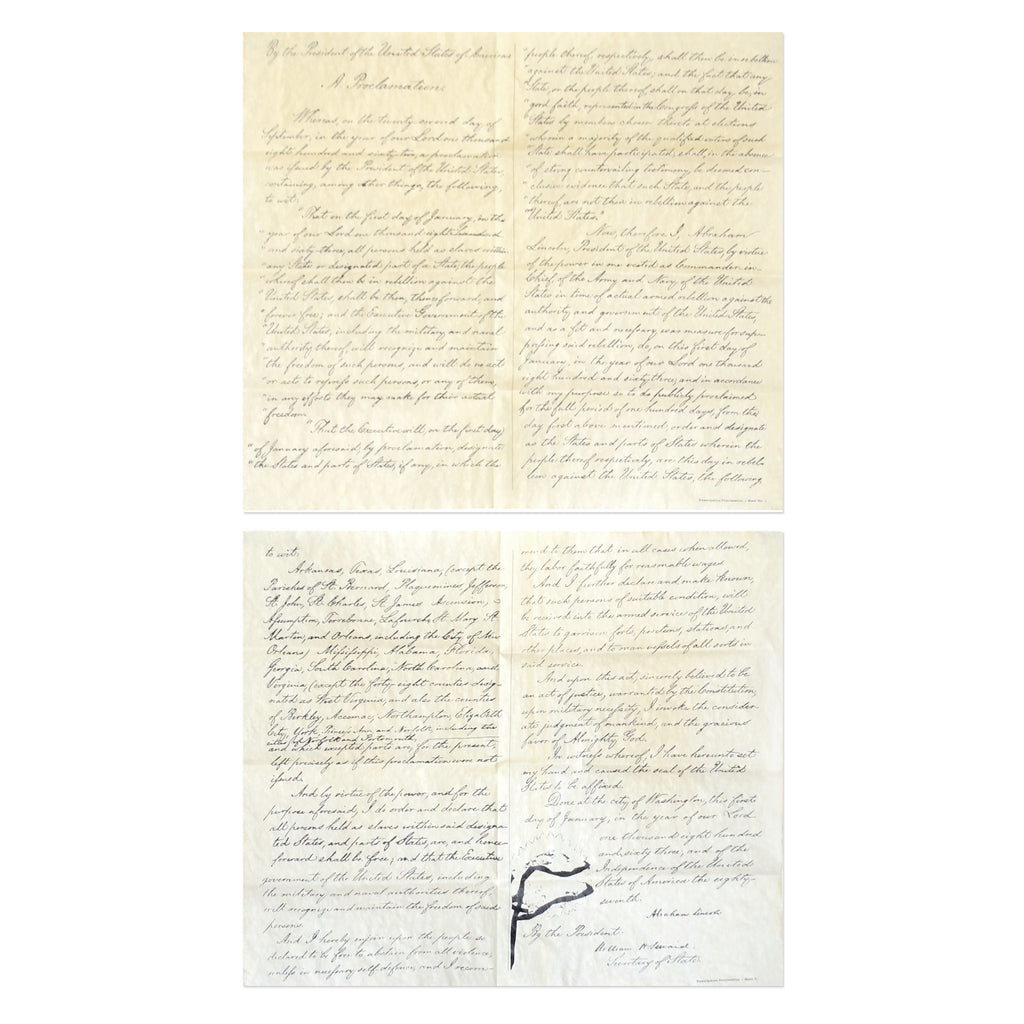 By the President of the United States of America:
A Proclamation.
Whereas, on the twenty-second day of
September, in the year of our Lord one thousand
eight hundred and sixty two, a proclamation
was issued by the President of the United States,
containing, among other things, the following,
to wit:
"That on the first day of January, in the
"year of our Lord one thousand eight hundred
"and sixty-three, all persons held as slaves within
"any State or designated part of a State, the people
"whereof shall then be in rebellion against the
"United States, shall be then, thenceforward, and
"forever free; and the Executive Government of the
"United States, including the military and naval
"authority thereof, will recognize and maintain
"the freedom of such persons, and will do no act
"or acts to repress such persons, or any of them,
"in any efforts they may make for their actual
"freedom.
"That the Executive will, on the first day
"of January aforesaid, by proclamation, designate
"the States and parts of States, if any, in which the
"people thereof, respectively, shall then be in rebellion
"against the United States; and the fact that any
"State, or the people thereof, shall on that day be, in
"good faith, represented in the Congress of the United
"States by members chosen thereto at elections
"wherein a majority of the qualified voters of such
"State shall have participated, shall, in the absence
"of strong countervailing testimony, be deemed con-
"clusive evidence that such State, and the people
"thereof, are not then in rebellion against the
"United States."
Now, therefore I, Abraham
Lincoln, President of the United States, by virtue
of the power in me vested as Commander-in-
Chief, of the Army and Navy, of the United
States in time of actual armed rebellion against the
authority and government of the United States,
and as a fit and necessary war measure for sup-
pressing said rebellion, do, on this first day of
January, in the year of our Lord one thousand
eight hundred and sixty three, and in accordance
with my purpose so to do publicly proclaimed
for the full period of one hundred days, from the
day first above mentioned, order and designate
as the States and parts of States wherein the
people thereof respectively, are this day in rebel-
lion against the United States, the following,
Emancipation Proclamation
to wit:
Arkansas, Texas, Louisiana, (except the
Parishes of St. Bernard, Plaquemines, Jefferson,
St. John, St. Charles, St. James Ascension,
Assumption, Terrebonne, Lafourche, St. Mary, St.
Martin, and Orleans, including the City of New
Orleans) Mississippi, Alabama, Florida,
Georgia, South Carolina, North Carolina, and
Virginia, (except the forty-eight counties desig-
nated as West Virginia, and also the counties
of Berkley, Accomac, Northampton, Elizabeth
City, York, Princess Ann, and Norfolk, including the
cities of Norfolk and Portsmouth
and which excepted parts are, for the present,
left precisely as if this proclamation were not
issued.
And by virtue of the power, and for the
purpose aforesaid, I do order and declare that
all persons held as slaves within said designa-
ted States, and parts of States, are, and hence-
forward shall be free; and that the Executive
government of the United States, including
the military and naval authorities thereof,
will recognize and maintain the freedom of said
persons.
And I hereby enjoin upon the people so
declared to be free to abstain from all violence,
unless in necessary self-defence; and I recom-
mend to them that in all cases when allowed,
they labor faithfully for reasonable wages.
And I further declare and make known,
that such persons of suitable condition, will
be received into the armed service of the United
States to garrison forts, positions, stations, and
other places, and to man vessels of all sorts in
said service.
And upon this act, sincerely believed to be
an act of justice, warranted by the Constitution,
upon military necessity, I invoke the consider-
ate judgment of mankind, and the gracious
favor of Almighty God.
In witness whereof, I have hereunto set
my hand and caused the seal of the United
States to be affixed.
Done at the city of Washington, this first
day of January, in the year of our Lord
one thousand eight hundred
and sixty three, and of the
Independence of the United
States of America the eighty-
seventh.
Abraham Lincoln
By the President:
William H. Seward
Secretary of State.
Emancipation Proclamation